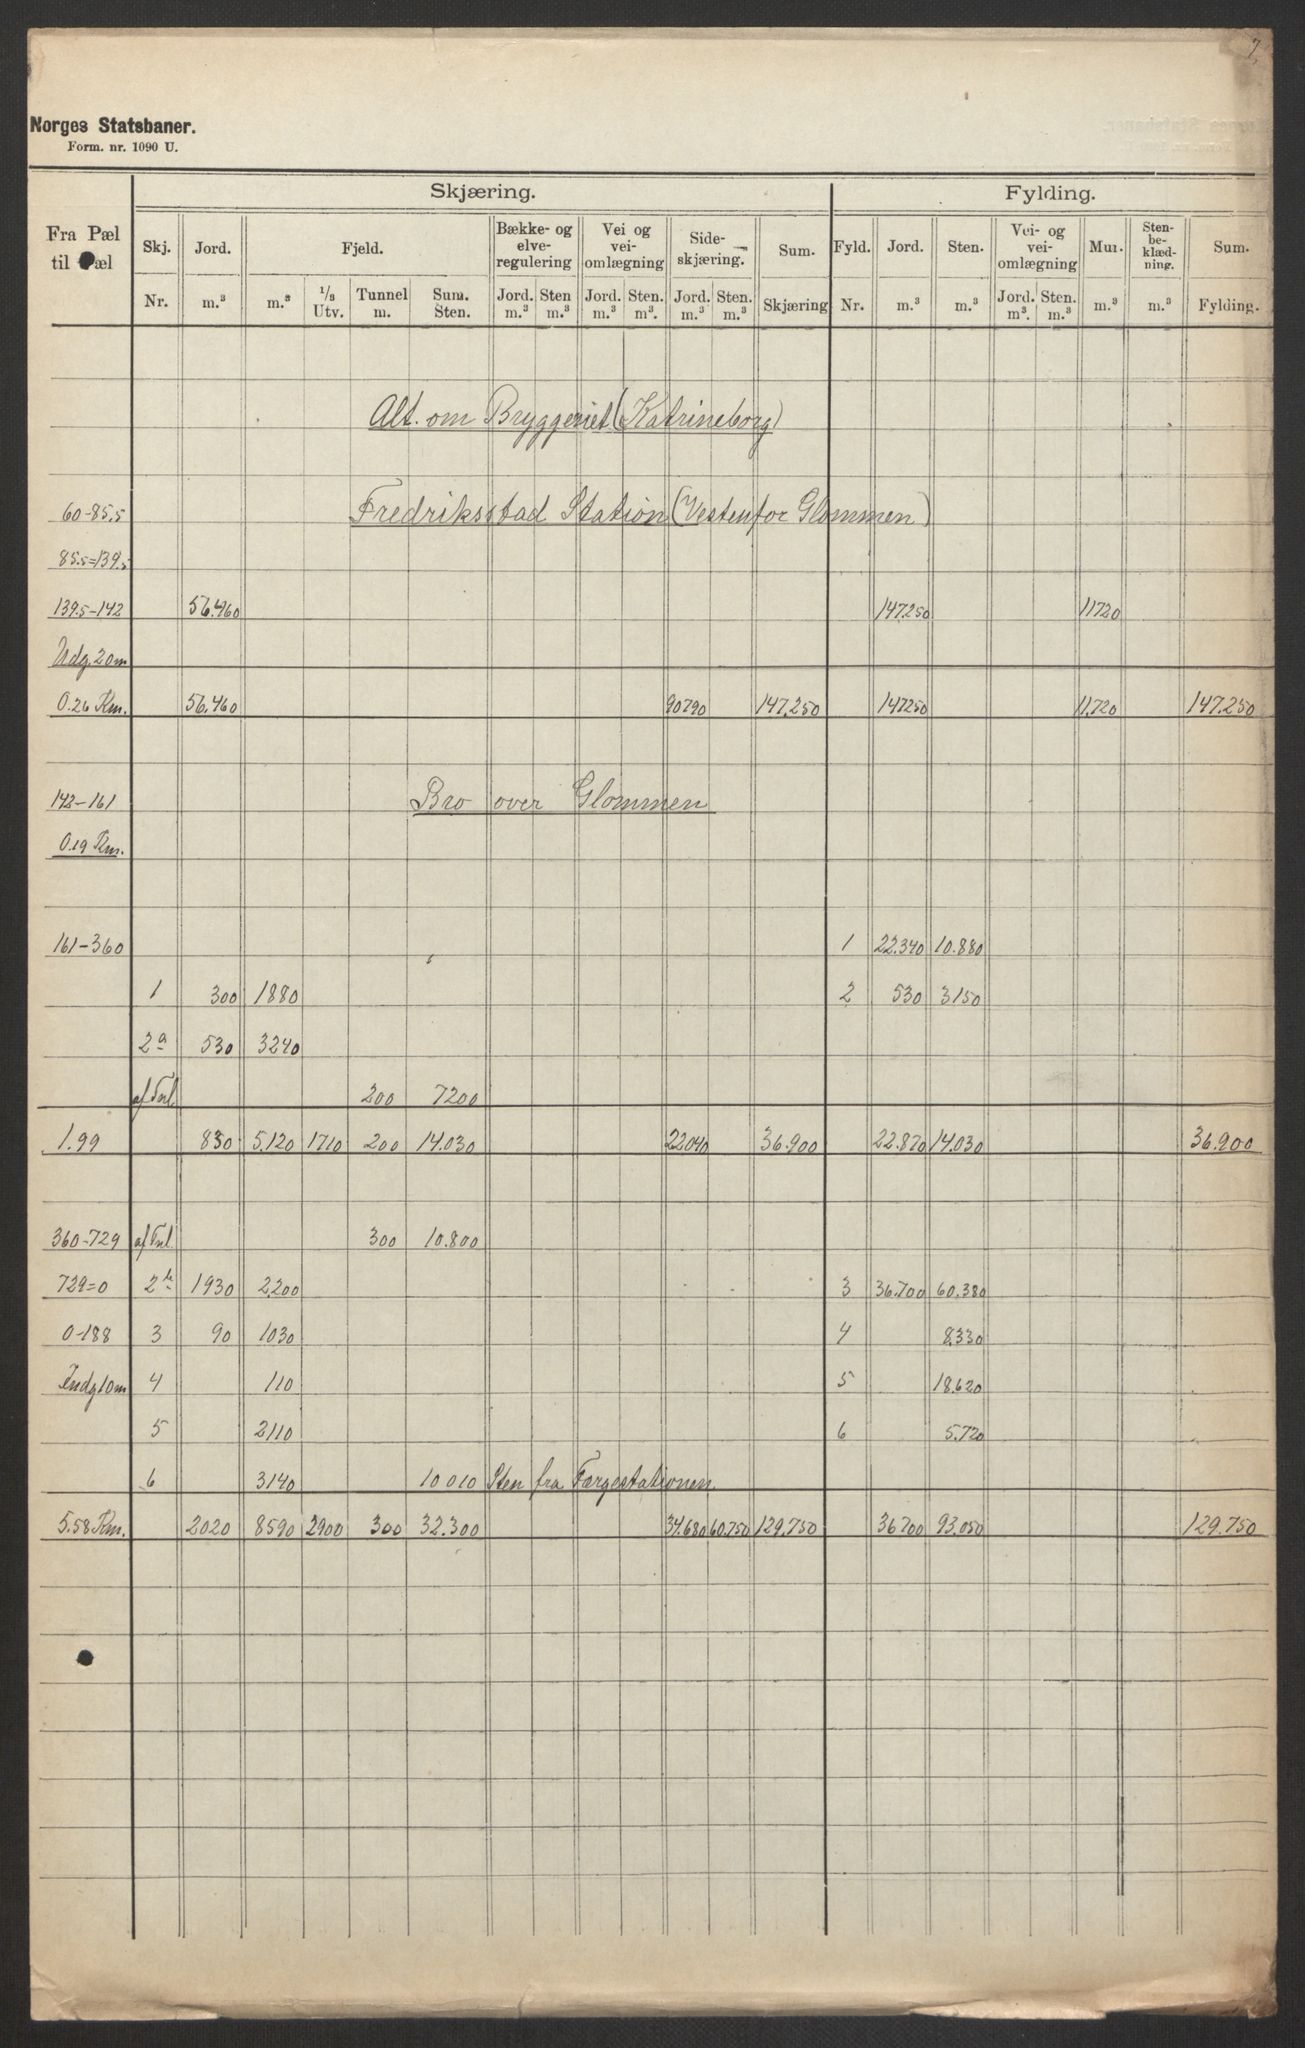 7,
Norges Statsbaner.
Form. nr. 1090 U.
Skjæring. Fylding.
Fra Pæl til Pæl Skj. Jord. Fjeld. Bække- og elve-regulering Vei og vei-omlægning Side-skjæring. Sum. Fyld. Jord. Sten. Vei- og vei-omlægning Mur. Sten-be-klæd-ning. Sum.
Nr. m.³ m.³ 1/3 Utv. Tunnel m. Sum. Sten. Jord. m.³ Sten m.³ Jord. m.³ Sten. m³. Jord. m.³ Sten. m.³ Skjæring Nr. m.³ m.³ Jord. m³. Sten. m.³ m.³ m.³ Fylding.
Alt. om Bryggeriet (Katrineborg)
60-85.5 Fredriksstad Station (Vestenfor Glommen)
85.5=139.5
139.5-142 56.460 147.250 11720
Udg. 20m
0.26 Km. 56.460 90790 147.250 147250 11.720 147.250
142-161 Bro over Glommen
0.19 Km.
161-360 1 22.340 10.880
1 300 1880 2 530 3150
2a 530 3240
af Tnl 200 7200
1.99 830 5.120 1710 200 14.030 22040 36.900 22.870 14.030 36.900
360-729 af Tnl. 300 10.800
729=0 2b 1930 2.200 3 36.700 60.380
0-188 3 90 1030 4 8.330
Indg 10m 4 110 5 18.620
5 2110 6 5.720
6 3140 10010 Sten fra Færgestationen
5.58 Km. 2020 8590 2900 300 32.300 34.680 60.750 129.750 36700 93.050 129.750